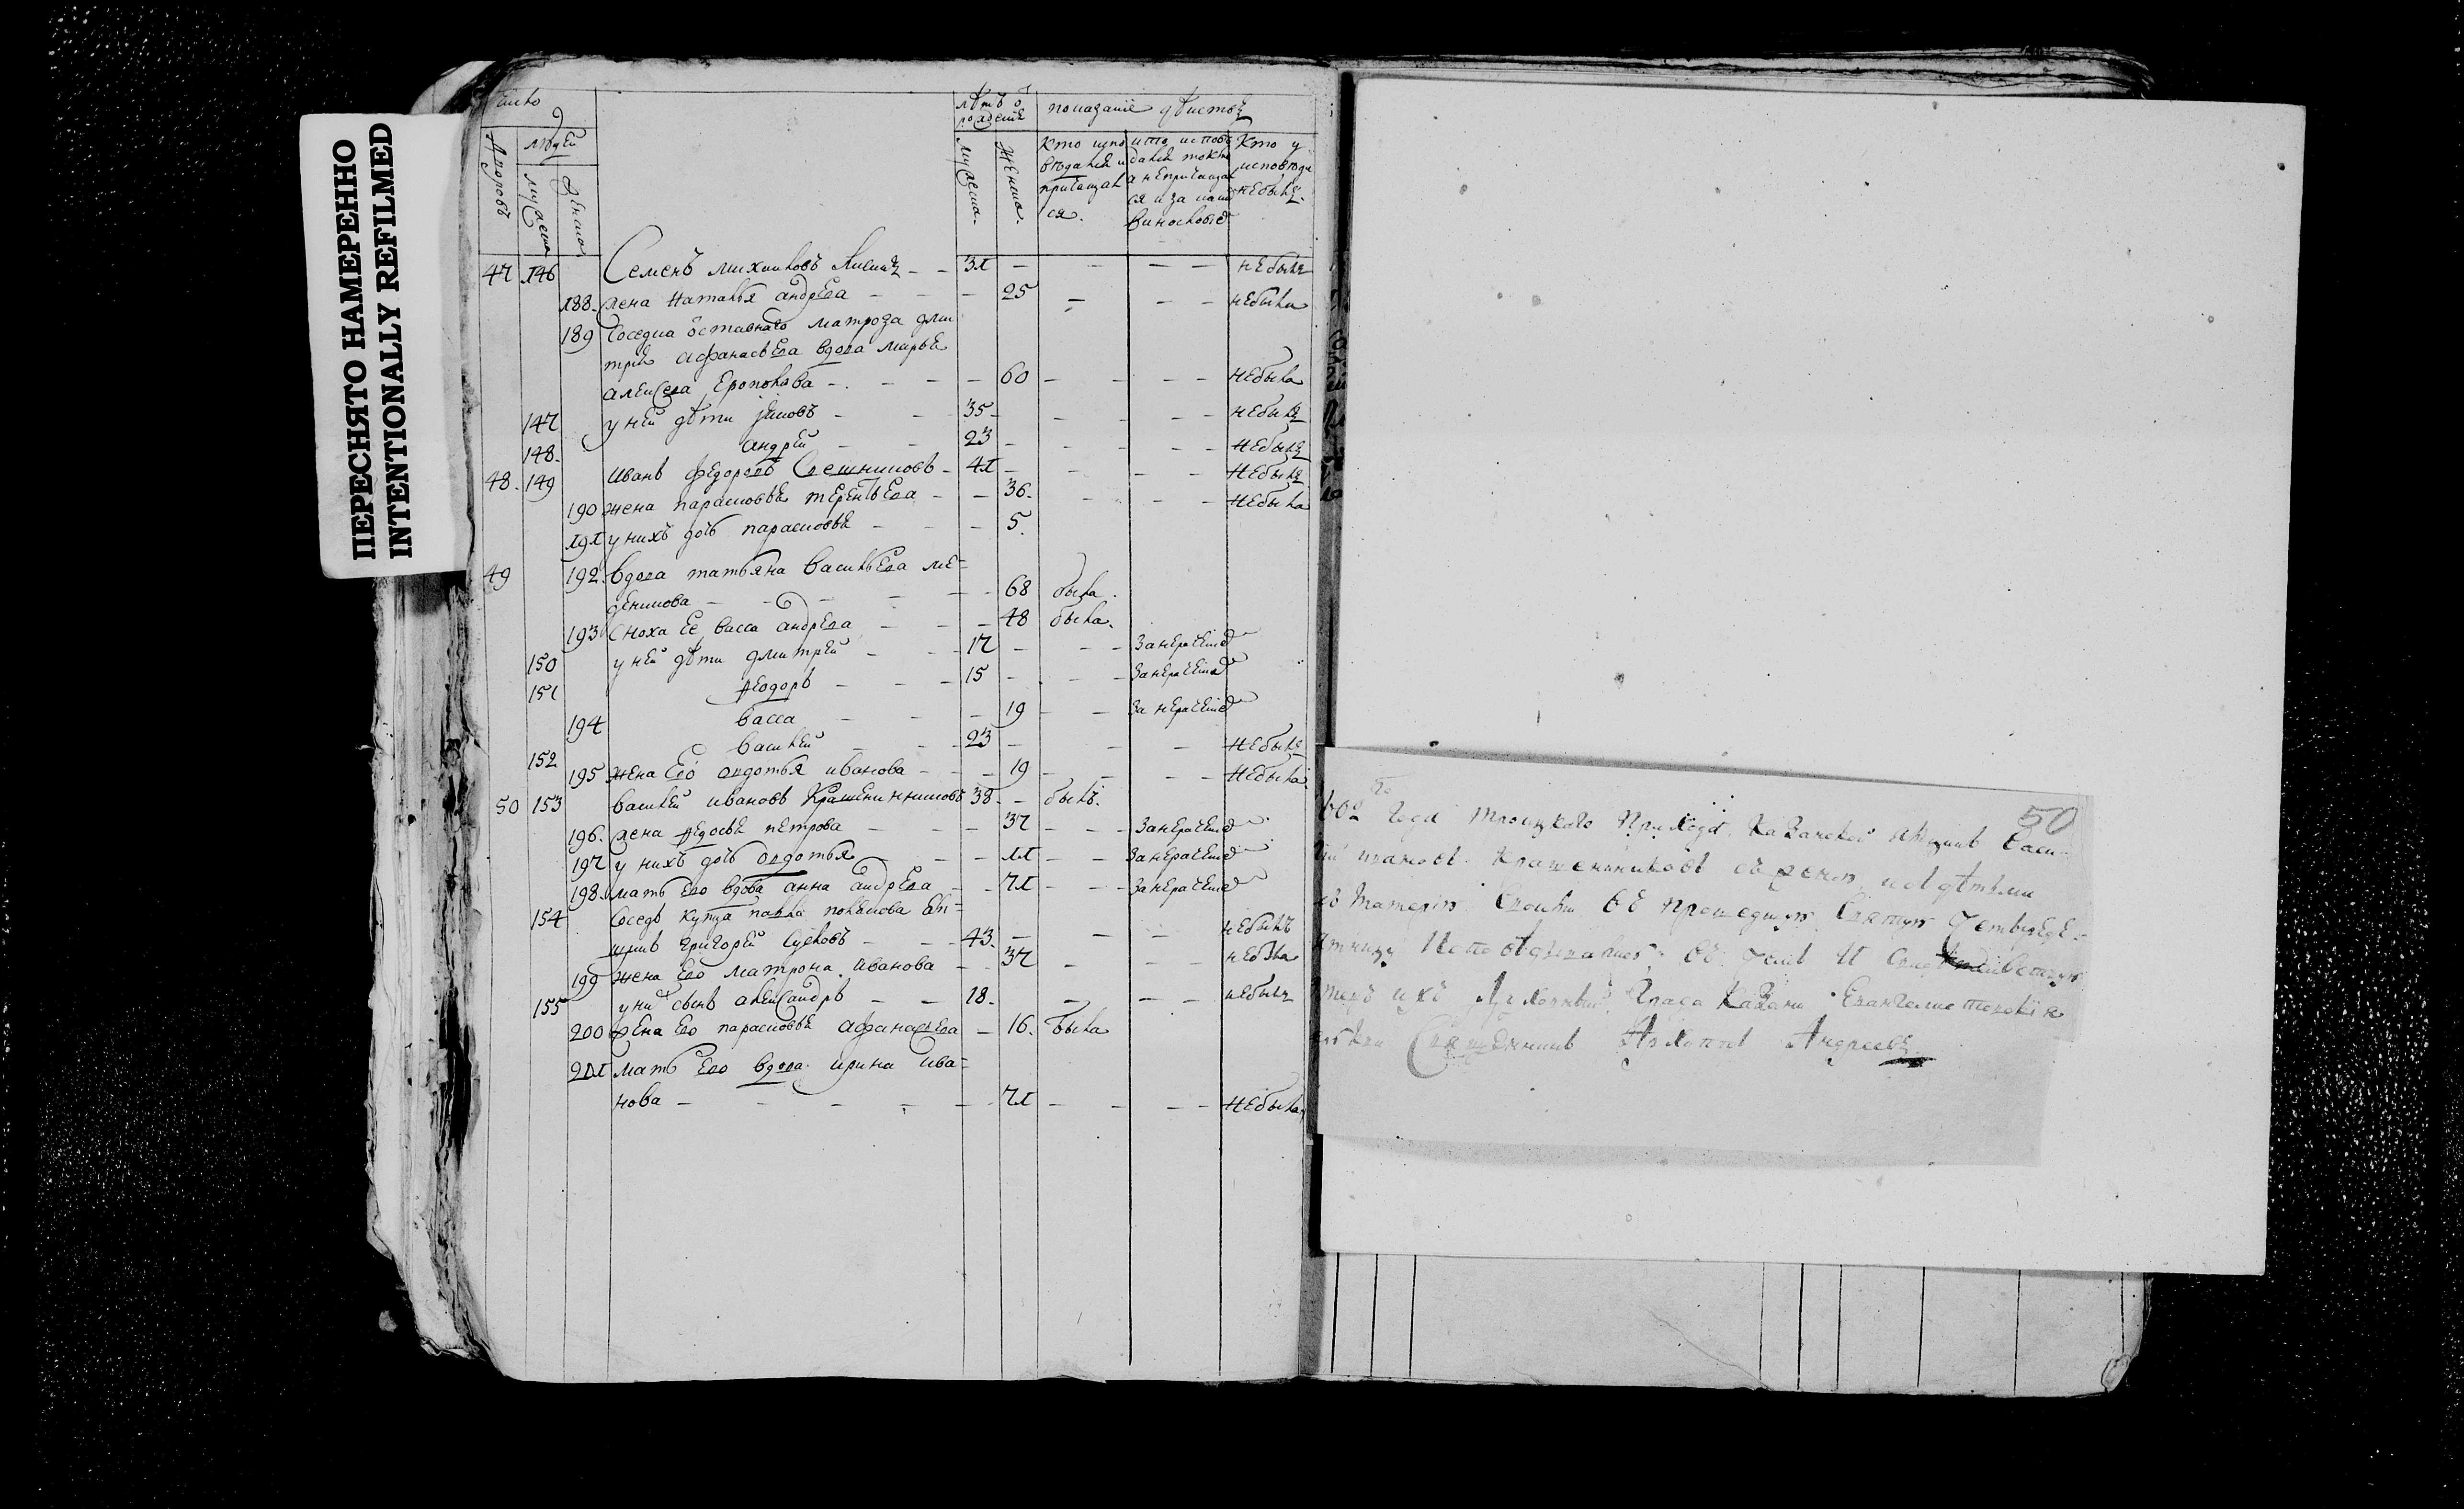 ПЕРЕСНЯТО НАМЕРЕННО
INTENTIONALLY REFILMED
число
лѣтъ ѿ рожденіѧ
показаніе дѣиство
дворовъ
людей
мужеска
женска
мужеска
женска
кто исповѣдался и причащался
кто исповѣдался токмо а непричащался и за каким винословіе
кто у исповѣди небылъ
47 146 Семенъ михаиловъ 31 небылъ
188 жена наталья андреева 25 небыла
189 Соседка ѿставнаго матроза дми
трия афанасьева вдова марья
алексеева 60 небыла
147 у ней дѣти иаковъ 35 небылъ
148 андрей 23 небылъ
48 149 иванъ федоровъ Свешниковъ 41 небылъ
190 жена парасковья терентьева 36 небыла
191 у нихъ дочь парасковья 5
49 192 вдова татьяна васильева ме=
деникова 68 была
193 сноха ее васса андреева 48 была
150 у ней дѣти дмитрей 17 занераченіе
151 ѳеодоръ 15 занераченіе
194 васса 19 занераченіе
152 василей 23 небылъ
195 жена его авдотья иванова 19 небыла
50 153 василей ивановъ Крашенинниковъ 38 былъ
196 жена ѳедосья петрова 37 занераченіе
197 у нихъ дочь авдотья 11 занераченіе
198 мать его вдова анна андреева 71 занераченіе
154 Соседъ купца павла полякова
григорей 43 небылъ
199 жена его матрона иванова 37 небыла
155 у них сынъ александръ 18 небылъ
200 жена его парасковья афанасьева 16 была
201 мать его вдова ирина ива=
нова 71 небыла
50
года троицкого прихода казанской васи
ивановъ крашенинниковъ съ женою и съ дѣтьми
съ материю своими въ прошедшую святую четыредеся
исповѣдывались
ихъ духовный града казани евангелистовскія
Священникъ Андреевъ